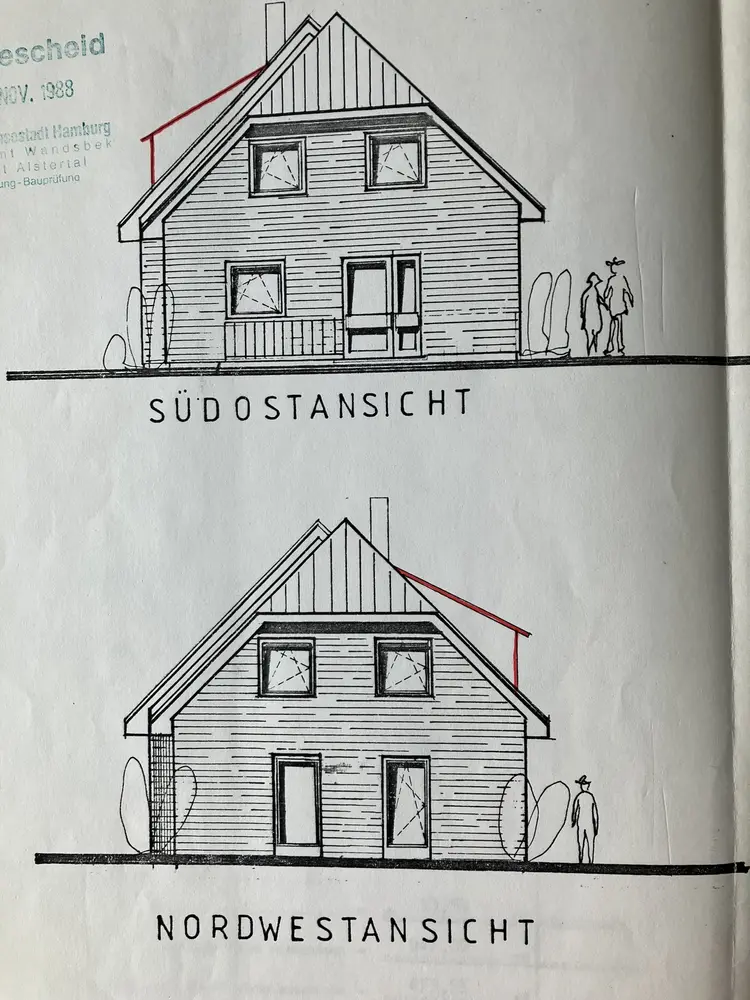 escheid
NOV. 1988
nsestadt Hamburg
mt Wandsbek
t Alstertal
ung-Bauprüfung
SÜDOSTANSICHT
NORDWESTANSICHT